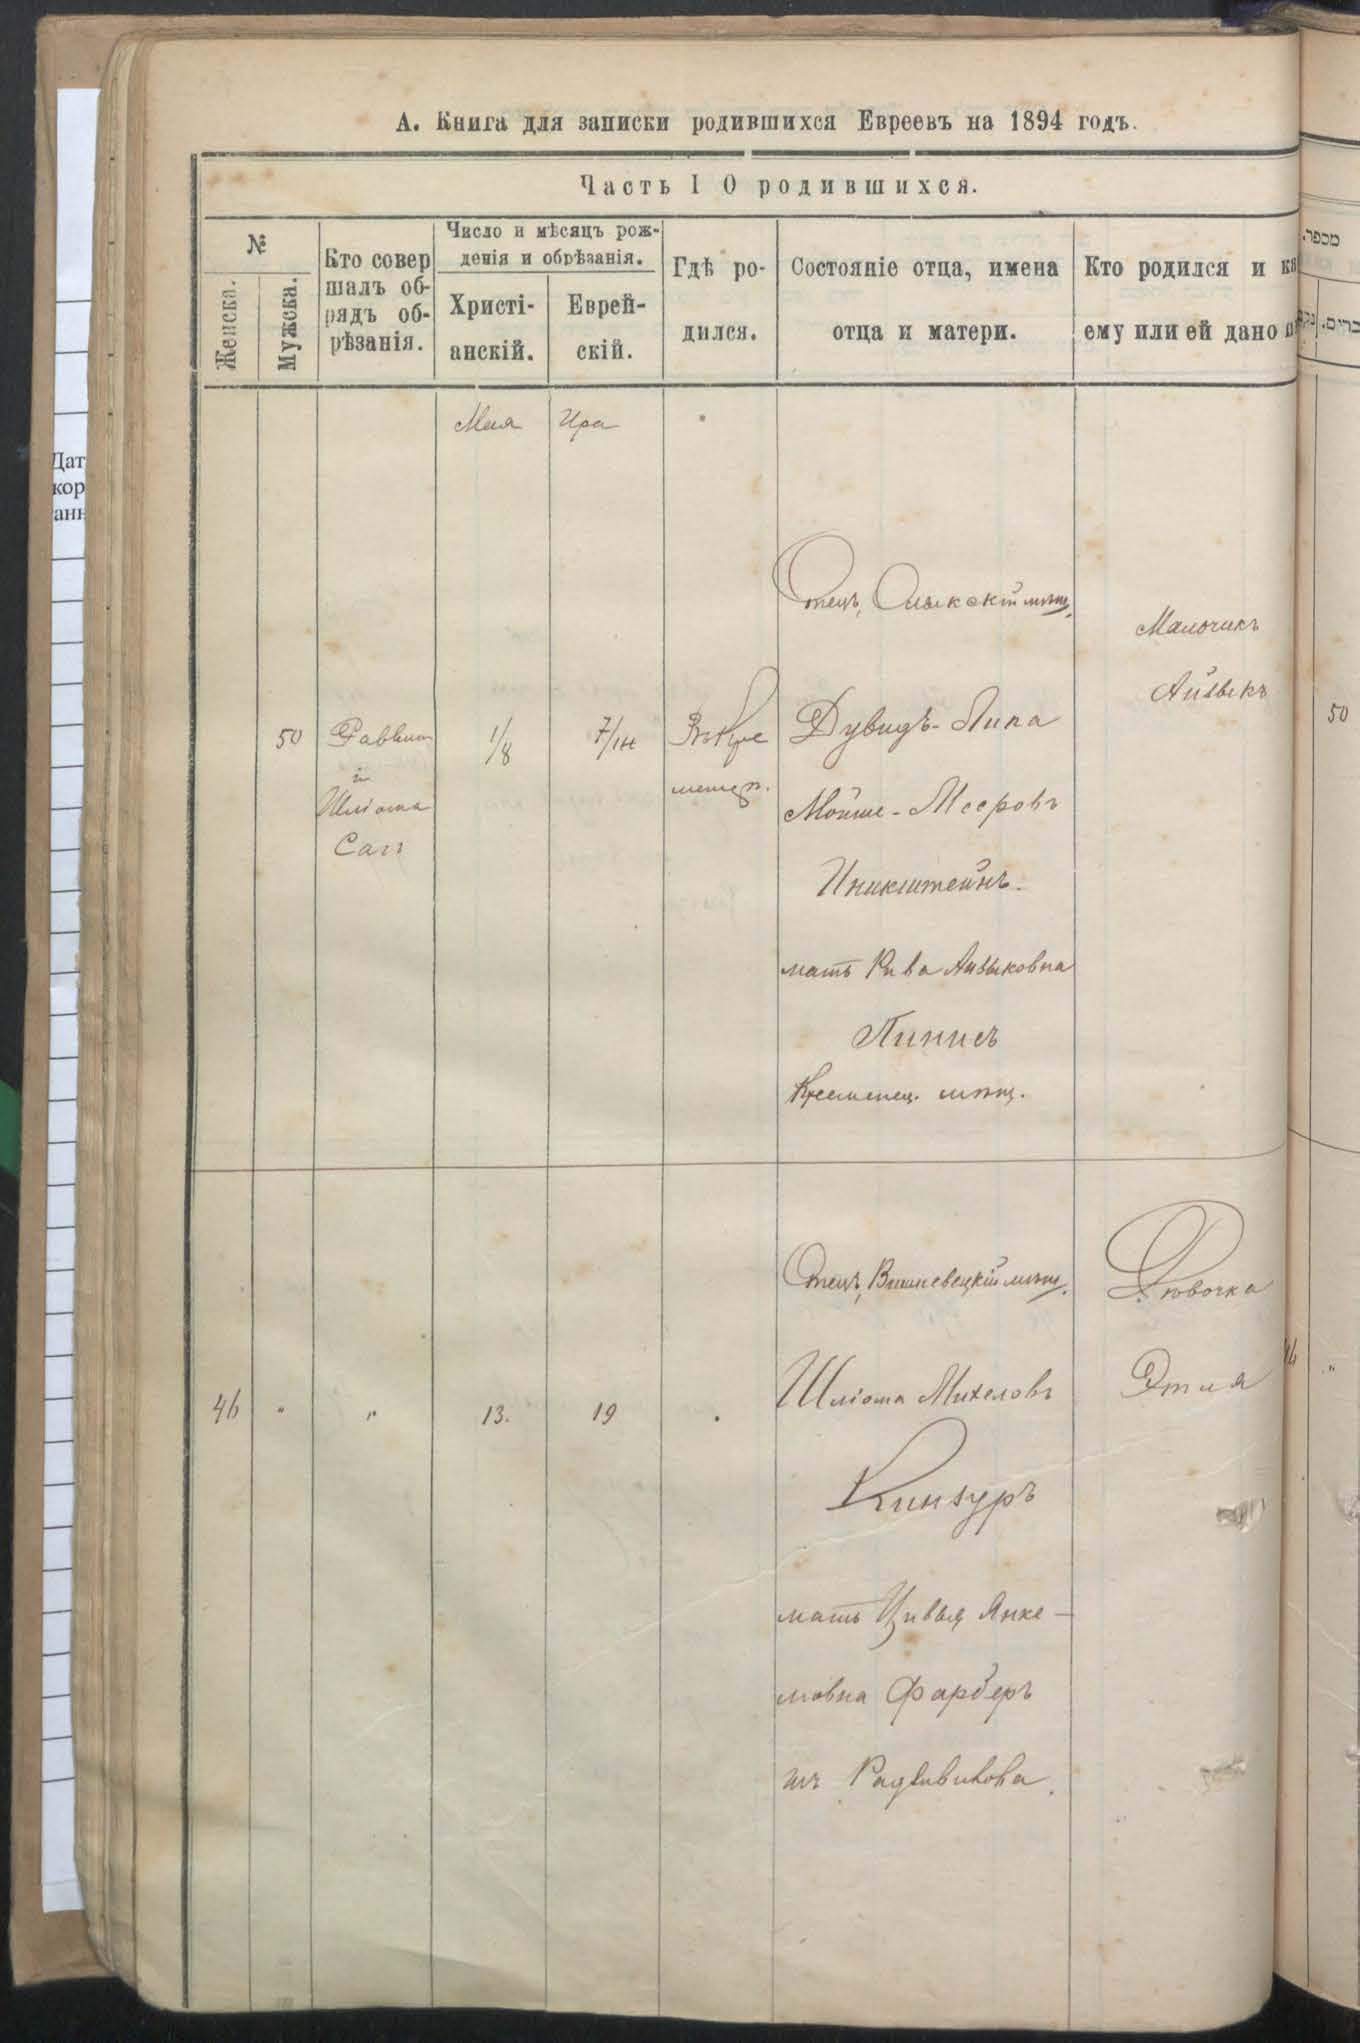 А. Книга для записки родившихся Евреевъ на 1894 годъ.
Часть I О родившихся.
№
Женска.
Мужска.
Кто совер
шалъ об-
рядъ об-
рѣзанія.
Число и мѣсяцъ рож-
денія и обрѣзанія.
Христі-
анскій.
Еврей-
скій.
Гдѣ ро-
дился.
Состояніе отца, имена
отца и матери.
Кто родился и
ему или ей дано
Дат
кор
анн
Мая
Ира
50
Раввин
и
Шліома
1/8
7/14
Въ Кре
менцѣ.
Отецъ, Олыкскій мѣщ.
Дувидъ-Липа
Мойше-Мееровъ
Иникштейнъ.
мать Рива Айзыковна
Пинисъ
Кременец. мѣщ.
Мальчикъ
Айзыкъ
50
46
"
"
13.
19
Отецъ, Вишневецкій мѣщ.
Шліома Михелевъ
Кинзуръ
мать Цивья Янке-
левна Фарберъ
изъ Радзивилова.
Дѣвочка
Этля
46
"
מספר.